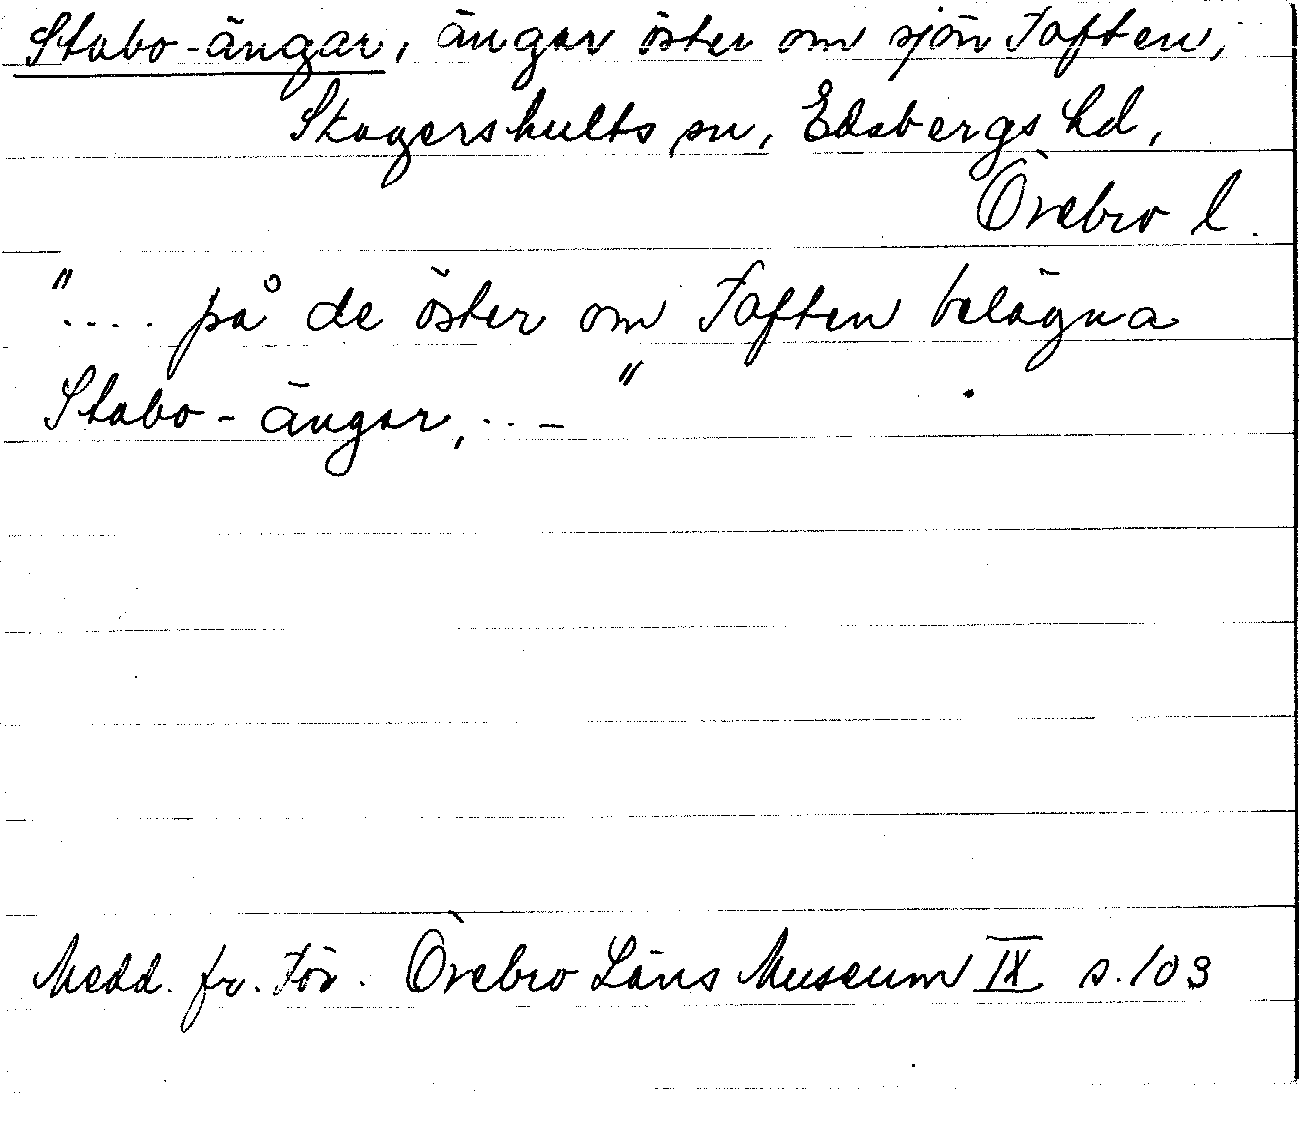 Stabo-ängar, ängar öster om sjön Toften,
Skagershults sn, Edsbergs hd,
Örebro l.
".... på de öster om Toften belägna
Stabo-ängar, ..–"
Medd. fr. För. Örebro Läns Museum IX s. 103